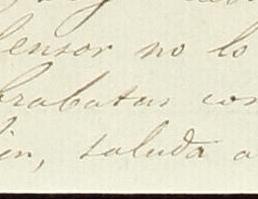 lensor no lo
brabatas con
in, saluda a